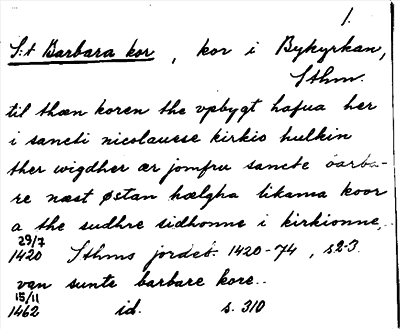 1.
S:t Barbara kor , kor i Bykyrkan,
Sthm.
til thæn koren the vpbygt hafua her
i sancti nicolausse kirkio hulkin
ther wigdher ær jomfru sancte barba-
re næst østan hælgha likama koor
a the sudhre sidhonne i kirkionne,
29/7
1420 Sthms jordeb. 1420-74 , s2-3.
van sunte barbare kore.
15/11
1462 id. s. 310